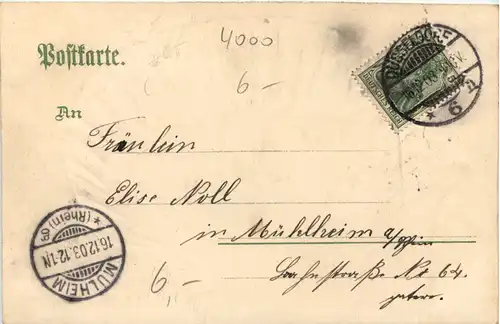 4000
Postkarte.
6-
DÜSSELDORF
* 6 n
An
Fräulein
Elise Noll
in Mühlheim a/Rhein
Bahnstraße No 64.
6-
MÜLHEIM
16.12.03.12-1N
* (Rhein)